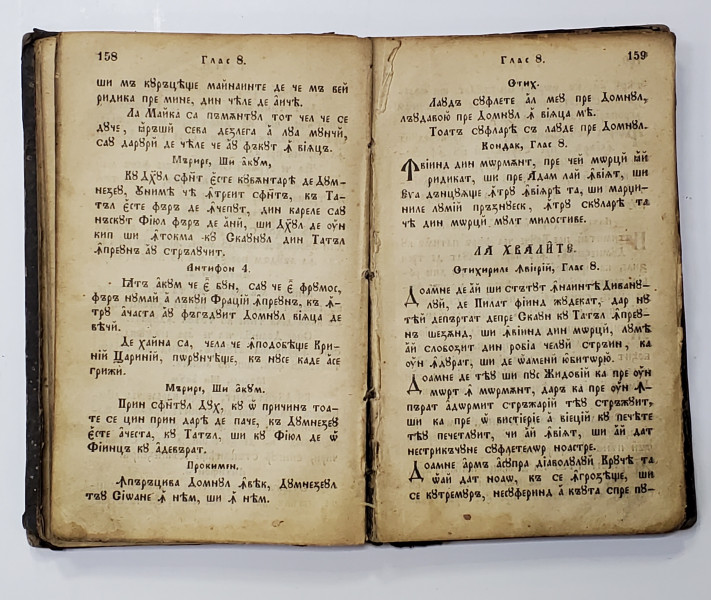 158 Глас 8.
ши мъ кꙋръцѣще майнаинте де че мъ вей
ридика пре мине, дин чѣле де аичѐ.
Ла Майка са пъмѫнтꙋл тот чел че се
дꙋче, ꙗ҆ръший сева дезлега а̀ лꙋа мꙋнчй,
саꙋ дарꙋрй де чѣле че аꙋ фъкꙋт ꙟ вїѧцъ.
Мърире, Ши а҆кꙋм,
Кꙋ Дх҃ꙋл сфн҃т є҆сте кꙋвѫнтарѣ де Дꙋм-
незеꙋ, ꙋнимѣ чѣ ꙟтреит сфн҃тъ, къ Та-
тъл є҆сте фъръ де ꙟчепꙋт, дин кареле саꙋ
нъскꙋт Фїюл фъръ де а҆нй, ши Дх҃ꙋл де оу҆н
кип ши ꙟтокма кꙋ Скаꙋнꙋл дин Татъл
ꙟпреꙋнъ аꙋ стрълꙋчит.
Антифон 4.
Ꙗтъ а҆кꙋм че є҆ бꙋн, саꙋ че є҆ фрꙋмос,
фъръ нꙋмай а̀ лъкꙋи Фраций ꙟпреꙋнъ, къ ꙟ-
трꙋ ачаста аꙋ фъгъдꙋит Домнꙋл вїѧца де
вѣчй.
Де хайна са, чела че ꙟподобѣще Кри-
нїй Царинїй, пѡрꙋнчѣще, къ нꙋсе каде а̀се
грижи.
Мърире, Ши а҆кꙋм.
Прин сфн҃тꙋл Дꙋх, кꙋ ѡ҆ причинъ тоа-
те се цин прин дарѣ де паче, къ Дꙋмнезеꙋ
є҆сте ачеста, кꙋ Татъл, ши кꙋ Фїюл де ѡ҆
Фїинцъ кꙋ а҆девърат.
Прокимен.
Ꙟпъръцива Домнꙋл ꙟвѣк, Дꙋмнезеꙋл
тъꙋ Сїѡане ꙟ нѣм, ши ꙟ нѣм.
Глас 8. 159
Стих.
Лаꙋдъ сꙋфлете а҆л меꙋ пре Домнꙋл,
лъꙋдавою пре Домнꙋл ꙟ вїѧца мѣ.
Тоатъ сꙋфларѣ съ лаꙋде пре Домнꙋл.
Кондак, Глас 8.
Ꙟвїинд дин мѡрмѫнт, пре чей мѡрцй ай
ридикат, ши пре Адам лай ꙟвїѧт, ши
Єѵа дънцꙋѧще ꙟтрꙋ ꙟвїѧрѣ та, ши марци-
ниле лꙋмїй пръзнꙋеск, ꙟтрꙋ скꙋларѣ та
чѣ дин мѡрцй мꙋлт милостиве.
ЛА ХВАЛИТЕ.
Стихириле ꙟвїерїй, Глас 8.
Доамне де ай ши стътꙋт ꙟнаинтѣ Диванꙋ-
лꙋй, де Пилат фїинд жꙋдекат, дар нꙋ
тей депъртат депре Скаꙋн кꙋ Татъл ꙟпреꙋ-
нъ шезѫнд, ши ꙟвїинд дин мѡрцй, лꙋмѣ
ай слободзит дин робїа челꙋй стрѣин, ка
оу҆н ꙟдꙋрат, ши де ѡ҆аменй юбиторю.
Доамне де тѣꙋ ши пꙋс Жидовїй ка пре оу҆н
мѡрт ꙟ мѡрмѫнт, даръ ка пре оу҆н ꙟ-
пърат адѡрмит стръжарїй тѣꙋ стръжꙋит,
ши ка пре ѡ҆ вистїерїе а҆ вїецїй кꙋ печѣте
тѣꙋ печетлꙋит, чи ай ꙟвїѧт, ши ай дат
нестрикъчꙋне сꙋфлетелѡр ноастре.
Доамне армъ асꙋпра дїаволꙋлꙋй Крꙋчѣ та
ѡ҆ай дат ноаѡ, къ се ꙟгрозѣще, ши
се кꙋтремꙋръ, несꙋферинд а̀ къꙋта спре пꙋ-